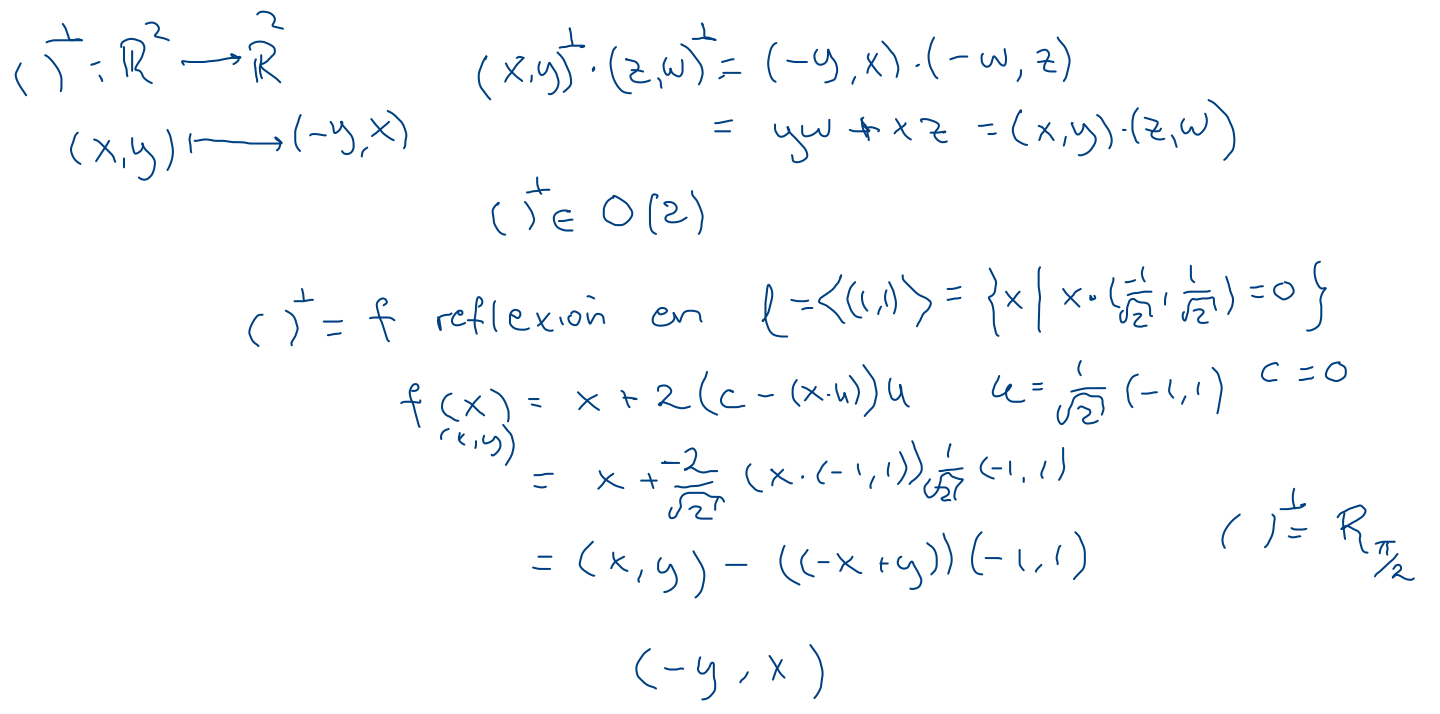 ( )^⊥ : ℝ² ⟶ ℝ²
(x,y) ⟼ (-y,x)
(x,y)^⊥ · (z,w)^⊥ = (-y,x) · (-w,z)
= yw + xz = (x,y)·(z,w)
( )^⊥ ∈ O(2)
( )^⊥ = f reflexión en ℓ = <(1,1)> = {x | x · (-1/√2, 1/√2) = 0}
f(x) = x + 2(c - (x·u))u   u = 1/√2 (-1,1)   c = 0
(x,y)
= x + -2/√2 (x·(-1,1)) 1/√2 (-1,1)
= (x,y) - ((-x+y))(-1,1)
( )^⊥ = R_{π/2}
(-y, x)